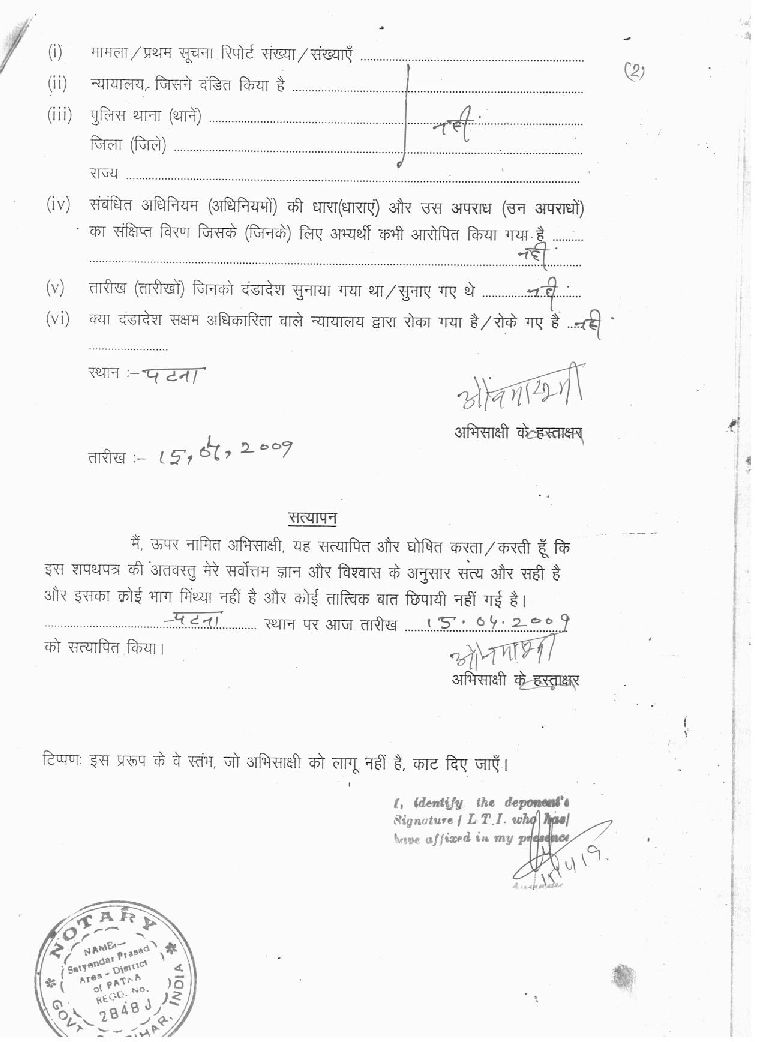 (2)
(i) मामला/प्रथम सूचना रिपोर्ट संख्या/संख्याएँ
(ii) न्यायालय, जिसने दंडित किया है
(iii) पुलिस थाना (थाने) नहीं
जिला (जिले)
राज्य
(iv) संबंधित अधिनियम (अधिनियमों) की धारा(धाराएं) और उस अपराध (उन अपराधों)
का संक्षिप्त विरण जिसके (जिनके) लिए अभ्यर्थी कभी आरोपित किया गया है
नहीं
(v) तारीख (तारीखों) जिनको दंडादेश सुनाया गया था/सुनाए गए थे नहीं
(vi) क्या दंडादेश सक्षम अधिकारिता वाले न्यायालय द्वारा रोका गया है/रोके गए है नहीं
स्थान :- पटना
अभिसाक्षी के हस्ताक्षर
तारीख :- 15, 04, 2009
सत्यापन
मैं, ऊपर नामित अभिसाक्षी, यह सत्यापित और घोषित करता/करती हूँ कि
इस शपथपत्र की अतवस्तु मेरे सर्वोत्तम ज्ञान और विश्वास के अनुसार सत्य और सही है
और इसका कोई भाग मिथ्या नहीं है और कोई तात्विक बात छिपायी नहीं गई है।
पटना स्थान पर आज तारीख 15.04.2009
को सत्यापित किया।
अभिसाक्षी के हस्ताक्षर
टिप्पण: इस प्ररूप के वे स्तंभ, जो अभिसाक्षी को लागू नहीं है, काट दिए जाएँ।
I, identify the deponent's
Signature / L T.I. who has/
have affixed in my presence
NOTARY
NAME:-
Satyendar Prasad
Area - District
of PATNA
REGD. No.
2848 J
GOVT BIHAR, INDIA